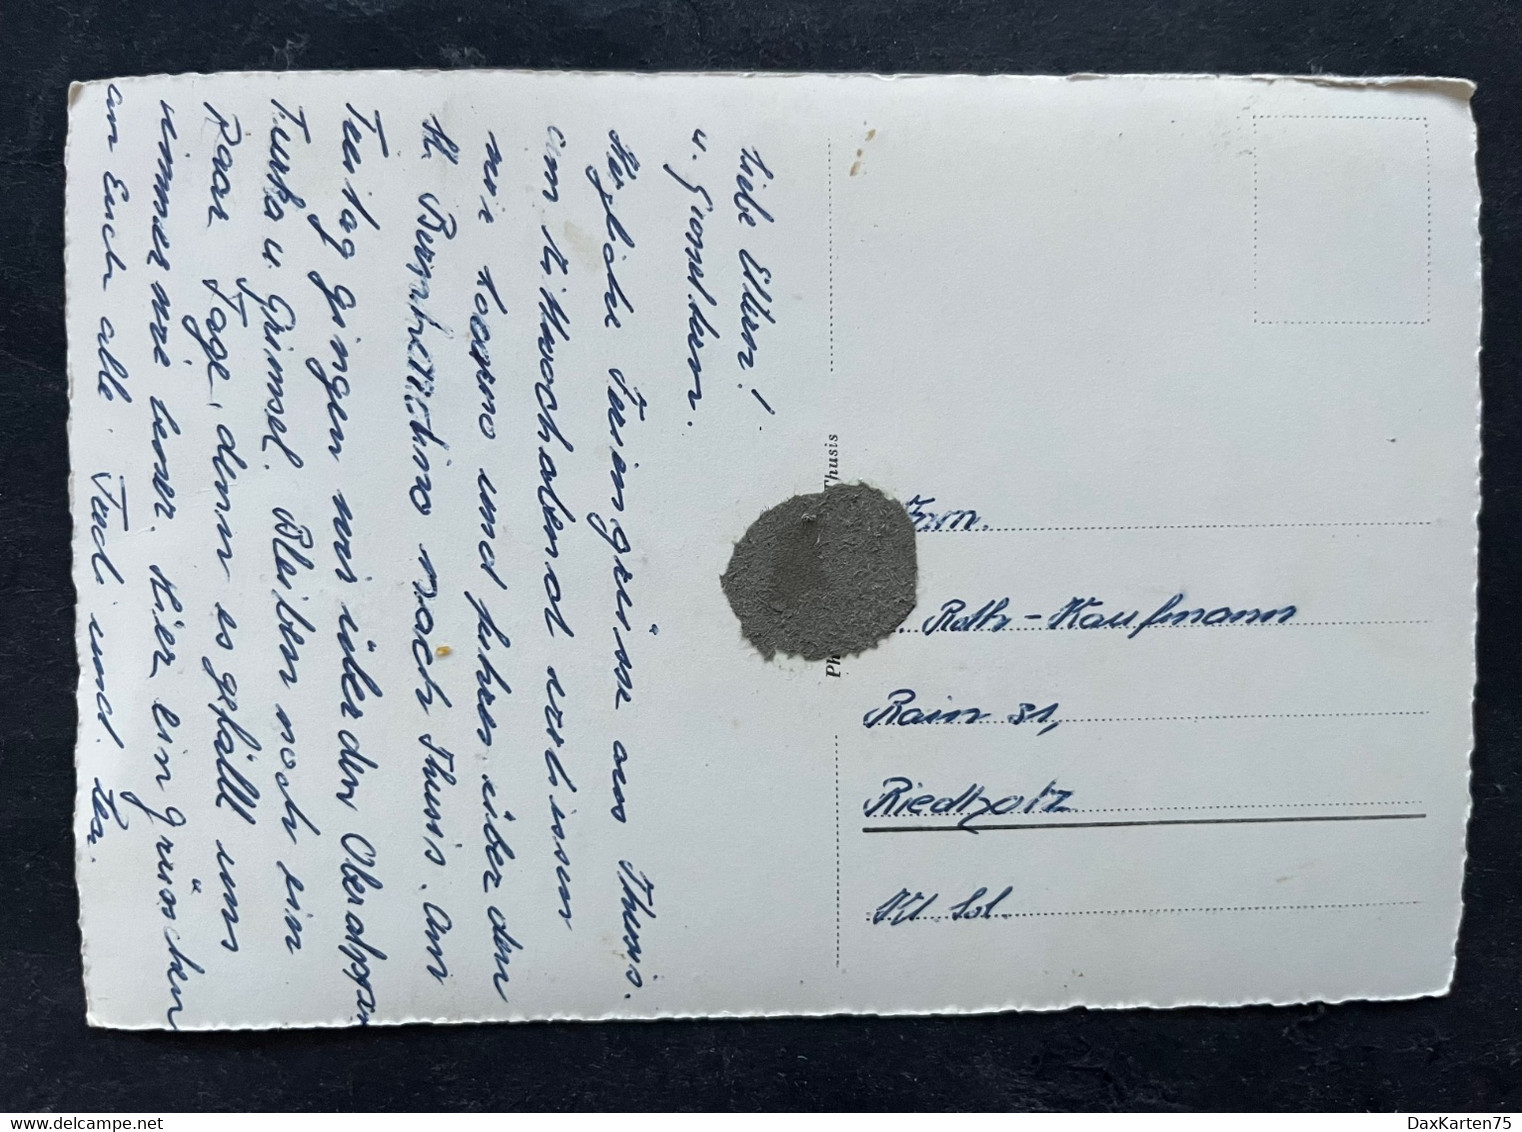 Liebe Eltern!
u. Grosseltern.
Herzliche Feriengrüsse aus Thusis.
am Mittwochabend verliessen
wir Locarno und fuhren über den
St. Bernhardino nach Thusis. Am
Freitag gingen wir über den Oberalppass
Furka u. Grimsel. Bleiben noch ein
Paar Tage, denn es gefällt uns
immer besser. Hier ein Grüsschen
an Euch alle. Fredi und
Ph
Thusis
Fam.
Roth-Kaufmann
Rain 31,
Riedholz
Kt. Sol.
DaxKarten75